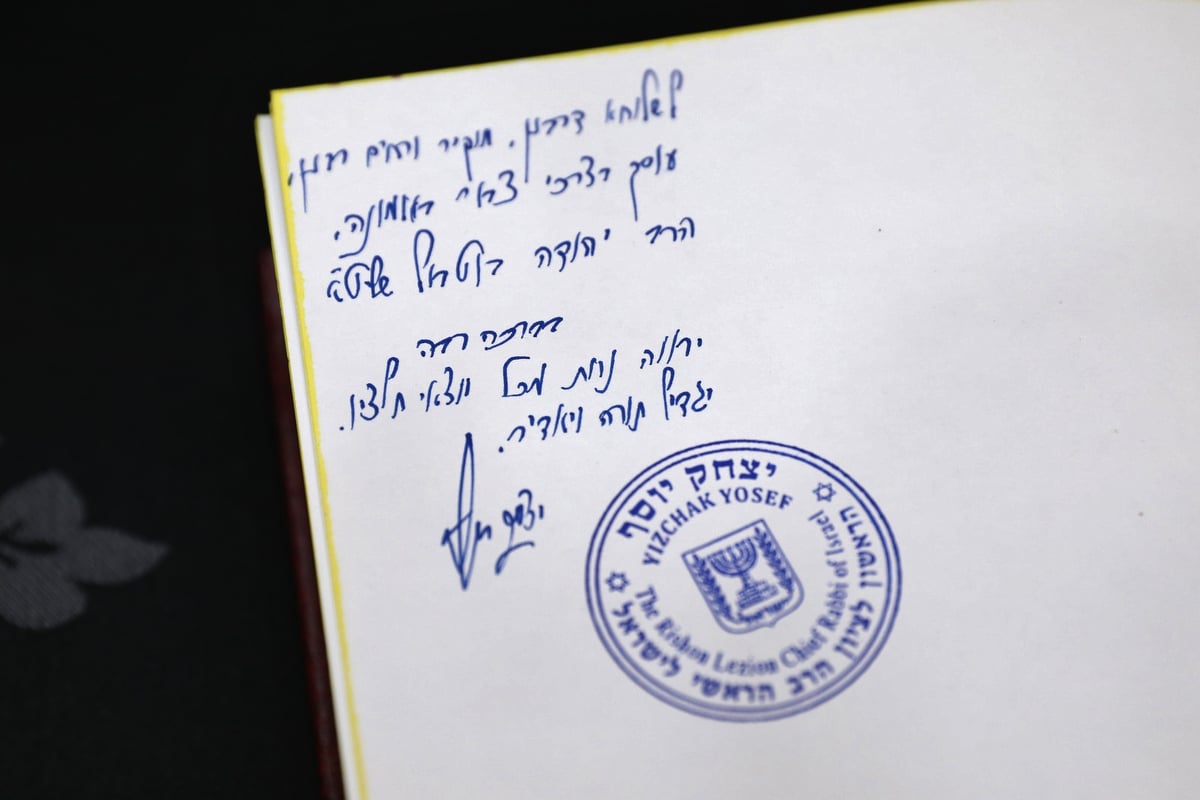 לשלוחא דרבנן, מוקיר ורחים רבנן,
עוסק בצרכי באמונה.
הרב יהודה בוטבול שליט"א
בברכה רבה
ירווה נחת מכל יוצאי חלציו.
יגדיל תורה ויאדיר.
יצחק יוסף
יצחק יוסף
YIZCHAK YOSEF
The Rishon Lezion Chief Rabbi of Israel
הראשון לציון הרב הראשי לישראל